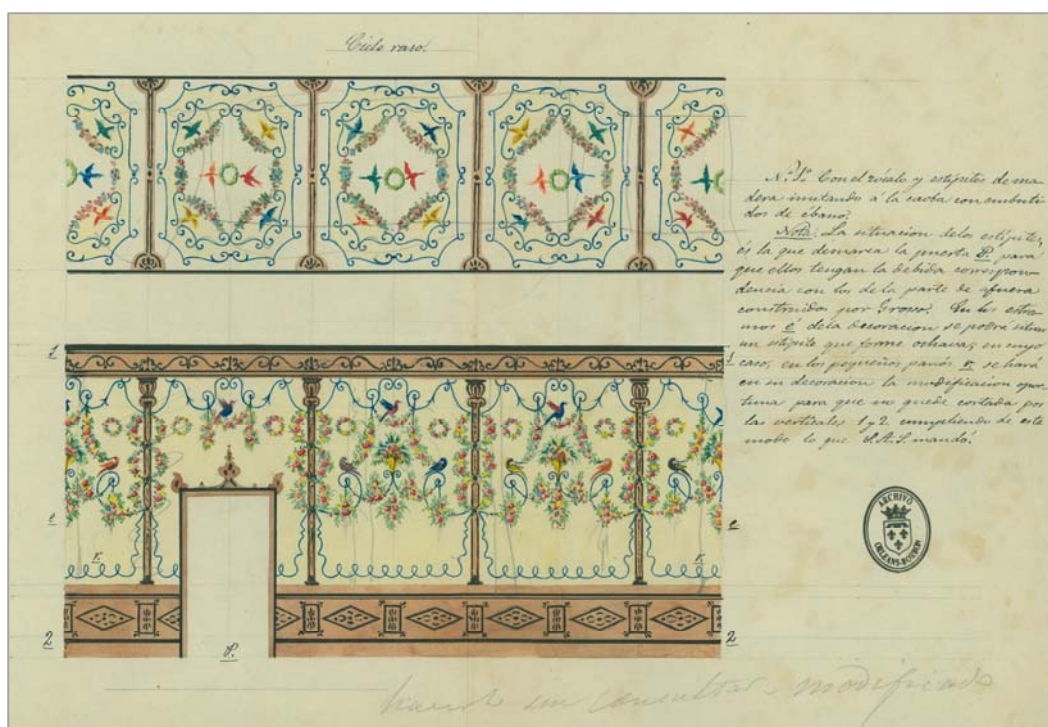 Cielo raso.
N.º 1º Con el zócalo y estípites de ma-
dera imitando a la caoba con embuti-
dos de ébano.
Nota. La situacion de los estípites,
és la que demarca la puerta P. para
que ellos tengan la debida correspon-
dencia con los de la parte de afuera
construidos por Grosso. En los estre-
mos é de la decoracion se podra situar
un estípite que forme ochava, en cuyo
caso, en los pequeños paños F. se hará
en su decoracion la modificacion opor-
tuna para que no quede cortada por
las verticales 1 y 2 cumpliendo de este
modo lo que S.A.S. mandó.
1
1
e
e
F.
F.
2
2
P.
ARCHIVO
ORLEANS-BORBON
sin consultar modificado